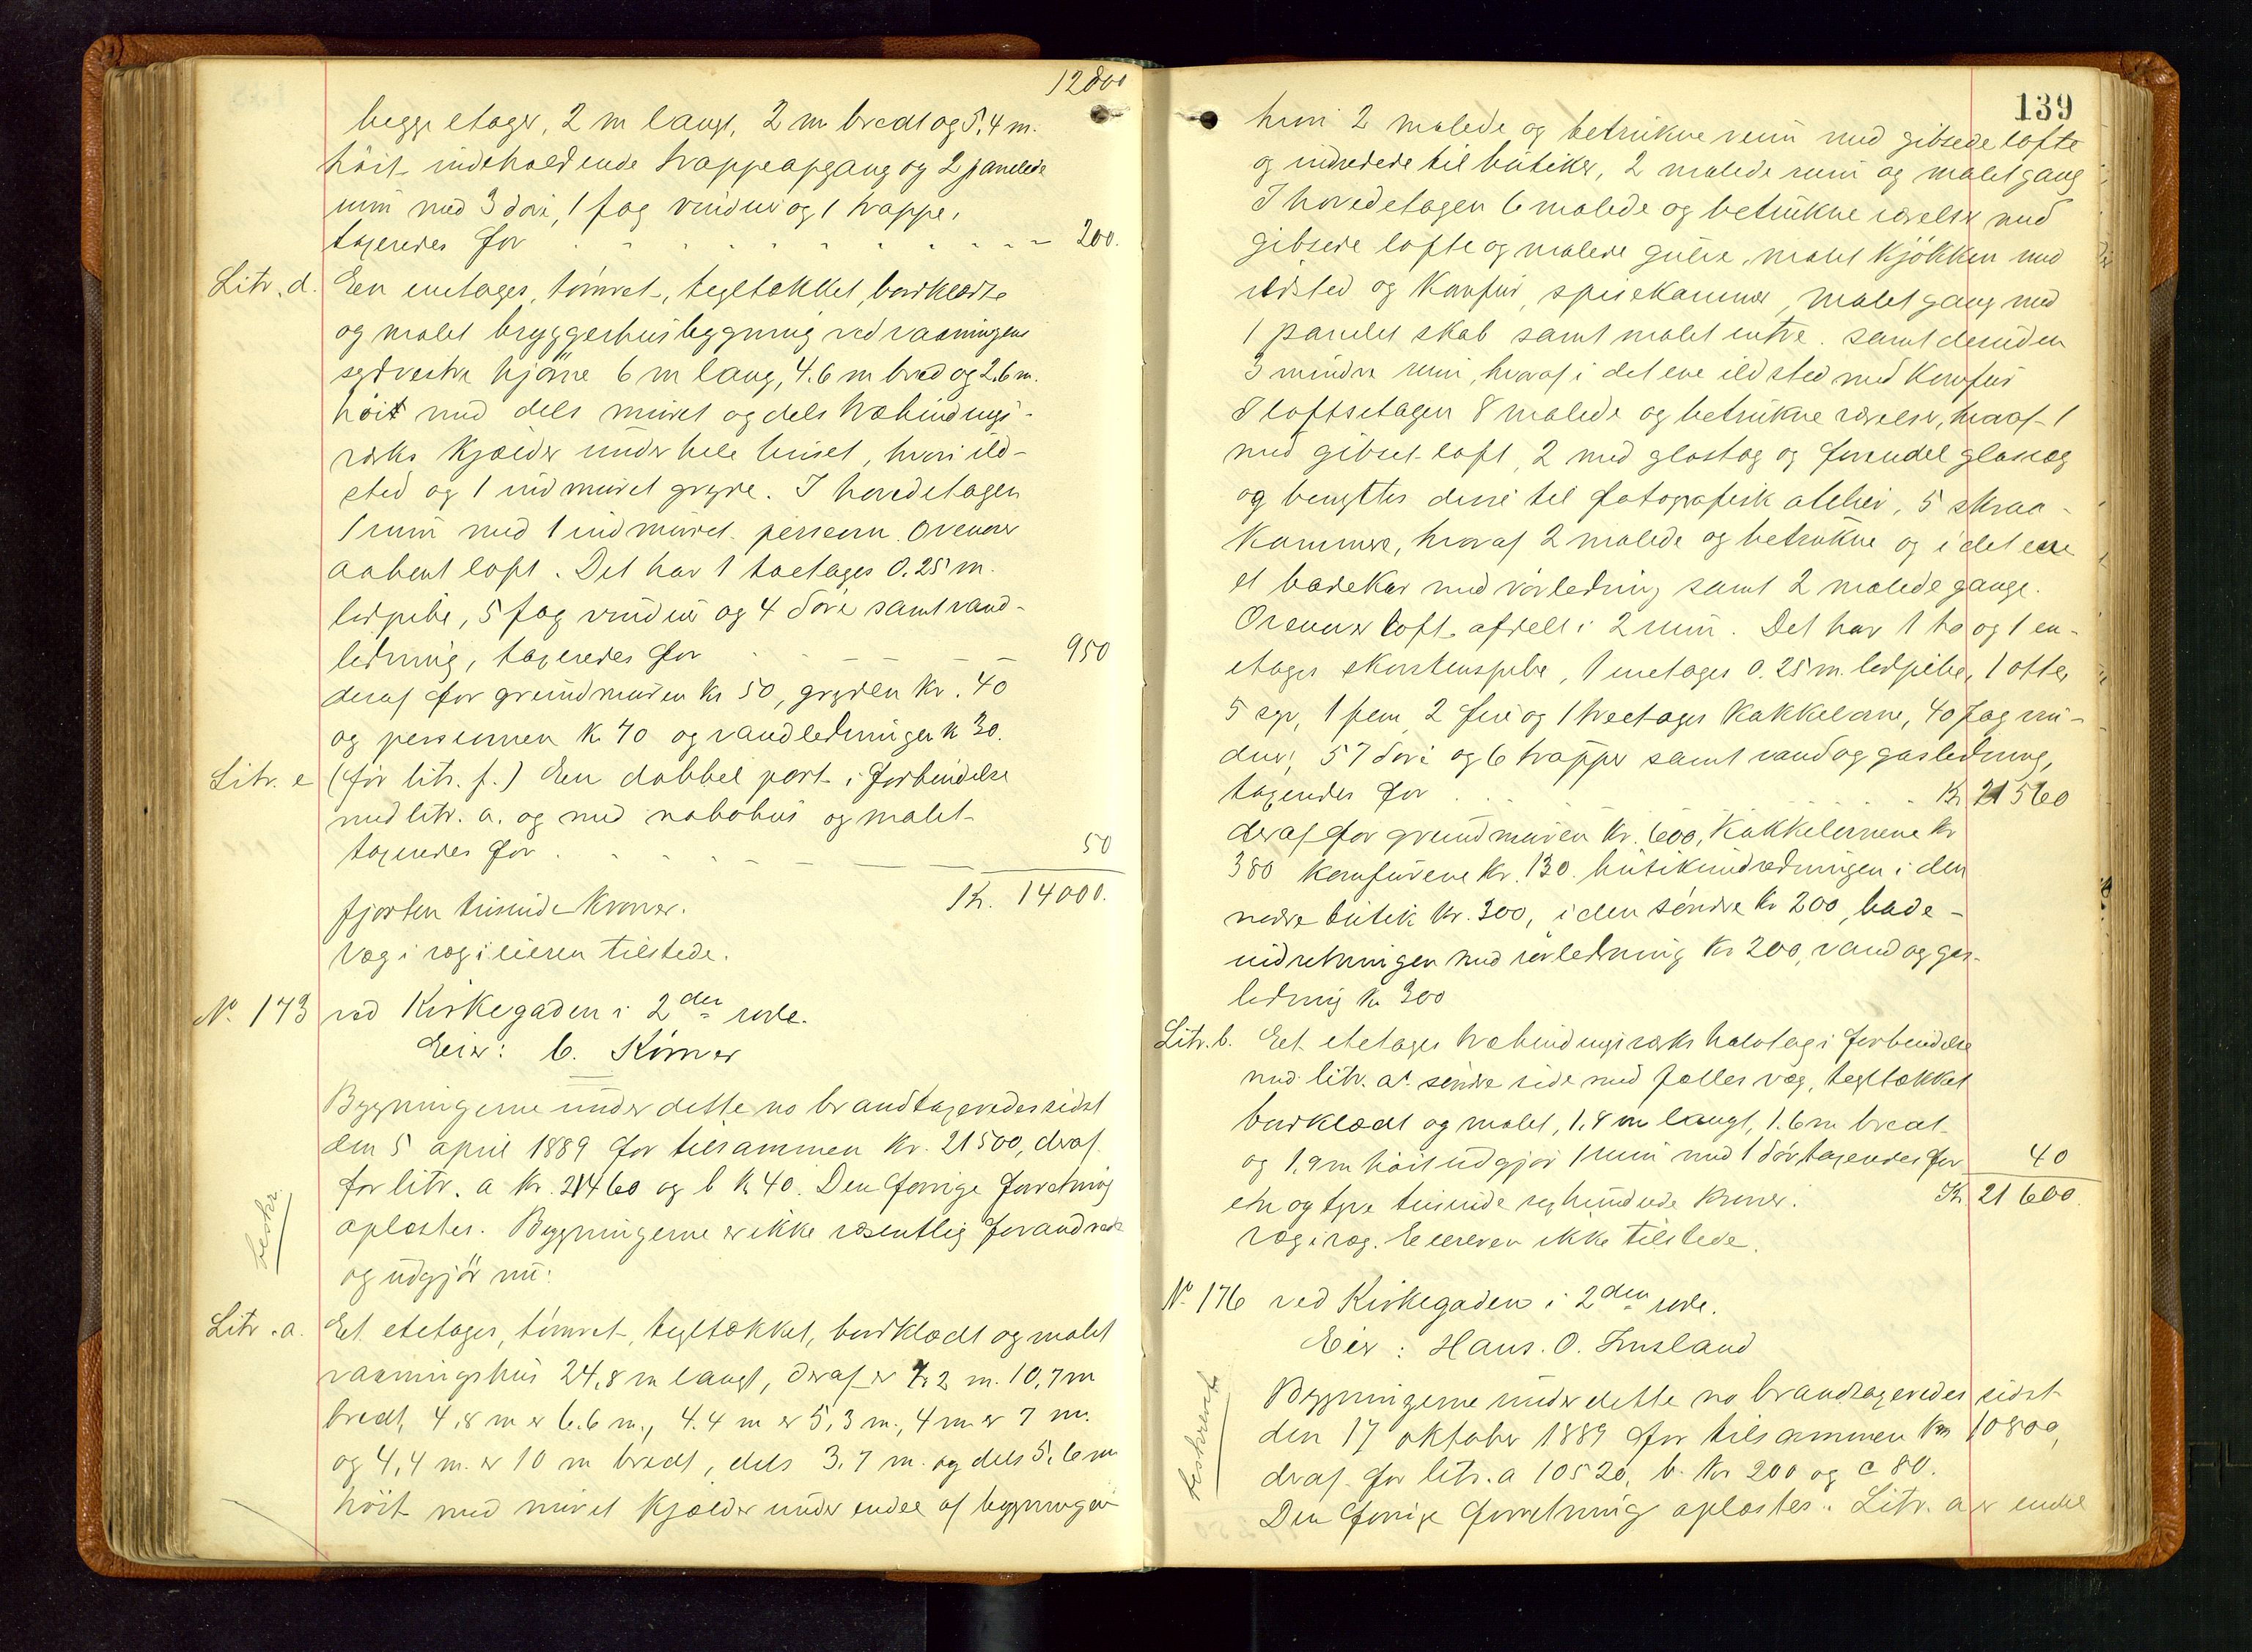 12800
begge etager, 2 m langt, 2 m bredt og 5,4 m.
höit indeholdende trappeopgang og 2 panelede
rum med 3 döre, 1 fag vinduer og 1 trappe,
taxeredes for 200.
Litr. d. Een eenetages, tömret, tegltækket, bordklædte
og malet bryggerhusbygning ved vaaningens
sydvestre hjörne 6 m lang, 4.6 m bred og 2.6 m.
höit med dels muret og dels træbindings-
værks Kjælder under hele huset, hvori ild-
sted og 1 indmuret gryde. I hovedetagen
1 rum med 1 indmuret perseovn. Ovenover
aabent loft. Det har 1 toetages 0.25 m.
ledpibe, 5 fag vinduer og 4 döre samt vand-
ledning, taxeredes for 950
deraf for grundmuren kr 50, gryden kr. 40
og perseovnen kr 70 og vandledningen kr 30.
Litr. e (før litr. f.) Een dobbel port i forbindelse
med litr. a. og med nabohus og malet
taxeredes for 50
Kr. 14000.
fjorten tusinde Kroner.
Væg i væg i eieren tilstede.
No. 173 ved Kirkegaden i 2den rode.
Eier: C. Körner
Bygningerne under dette no brandtaxeredes sidst
den 5 april 1889 for tilsammen Kr. 21500, deraf
for litr. a Kr. 21460 og b Kr 40. Den forrige forretning
oplæstes. Bygningerne er ikke væsentlig forandrede
beskr.
og udgjör nu:
Litr. a. Et etetages, tömret, tegltækket, bordklædt og malet
vaaningshus 24,8 m langt, deraf er 7,2 m. 10,7 m
bredt, 4,8 m er 6.6 m., 4.4 m er 5,3 m., 4 m er 7 m.
og 4,4 m. er 10 m bredt, dels 3.7 m. og dels 5,6 m
höit med muret Kjælder under endel af bygningen
139
hvori 2 malede og betrukne rum med gibsede lofte
og indredede til butiker, 2 malede rum og malet gang
I hovedetagen 6 malede og betrukne værelser med
gibsede lofte og malede gulve, malet Kjökken med
ildsted og Komfur, spisekammer, malet gang med
1 panelet skab samt malet entre. samt desuden
3 mindre rum, hvoraf i det ene ildsted med Komfur
I loftsetagen 8 malede og betrukne værelser, hvoraf 1
med gibset loft, 2 med glastag og forendel glasvæg
og benyttes disse til fotografisk atelier, 5 skraa-
Kammere, hvoraf 2 malede og betrukne og i det ene
et badekar med rörledning samt 2 malede gange.
Ovenover loft afdelt i 2 rum. Det har 1 to og 1 en-
etages skorstenspibe, 1 enetages 0.25 m. ledpibe, 1 otte,
5 syv, 1 fem, 2 fire og 1 treetages Kakkelovne, 40 fag vin-
duer, 57 döre og 6 trapper samt vand og gasledning,
taxeredes for Kr 21560
deraf for grundmuren Kr. 600, Kakkelovnene Kr
380 komfurene Kr. 130. butikindredningen i den
nordre butik Kr. 300, i den söndre Kr 200, bade-
indretningen med rörledning Kr 200, vand og gas-
ledning Kr 300
Litr. b. Eet etetages træbindingsværks halvtag i forbindelse
med litr. a's söndre side med fælles væg, tegltækket
bordklædt og malet, 1,8 m langt, 1.6 m bredt
og 1,9 m höit udgjör 1 rum med 1 dör, taxeredes for 40
Kr. 21600.
en og tyve tusinde sex hundrede Kroner.
væg i væg. Eieren ikke tilstede.
No. 176 ved Kirkegaden i 2den rode.
Eier: Hans. O.
beskrevet
Bygningerne under dette no brandtaxeredes sidst
den 17 oktober 1889 for tilsammen Kr 10800,
deraf for litr. a 10520, b. Kr 200 og c 80.
Den forrige forretning oplæstes. Litr. a er endel